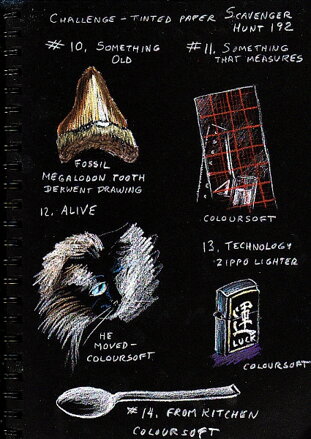 CHALLENGE - TINTED PAPER SCAVENGER
HUNT 192
#10. SOMETHING
OLD
#11. SOMETHING
THAT MEASURES
FOSSIL
MEGALODON TOOTH
DERWENT DRAWING
COLOURSOFT
12. ALIVE
HE
MOVED -
COLOURSOFT
13. TECHNOLOGY
ZIPPO LIGHTER
運
LUCK
COLOURSOFT
#14. FROM KITCHEN
COLOURSOFT